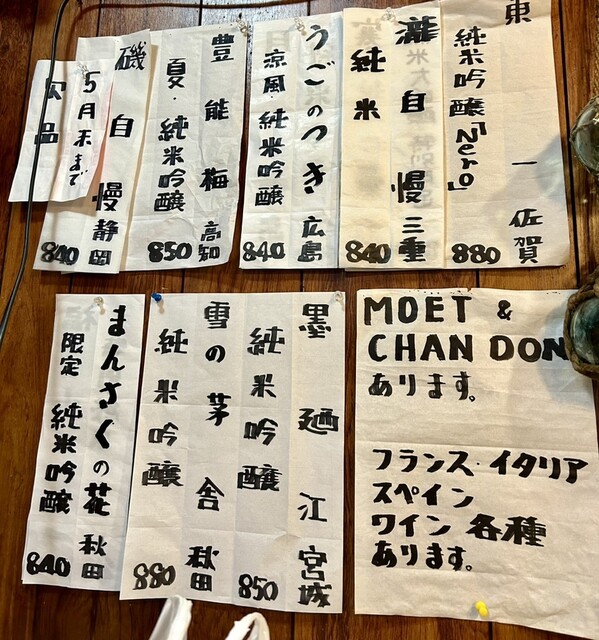 東一 佐賀
純米吟醸「Nero」 880
瀧自慢 三重
純米 840
うごのつき 広島
涼風・純米吟醸 840
豊能梅 高知
夏・純米吟醸 850
磯自慢 静岡
840
5月末まで
欠品
MOET &
CHANDON
あります。
フランス・イタリア
スペイン
ワイン 各種
あります。
墨廼江 宮城
純米吟醸 850
雪の茅舎 秋田
純米吟醸 880
まんさくの花 秋田
限定 純米吟醸 840